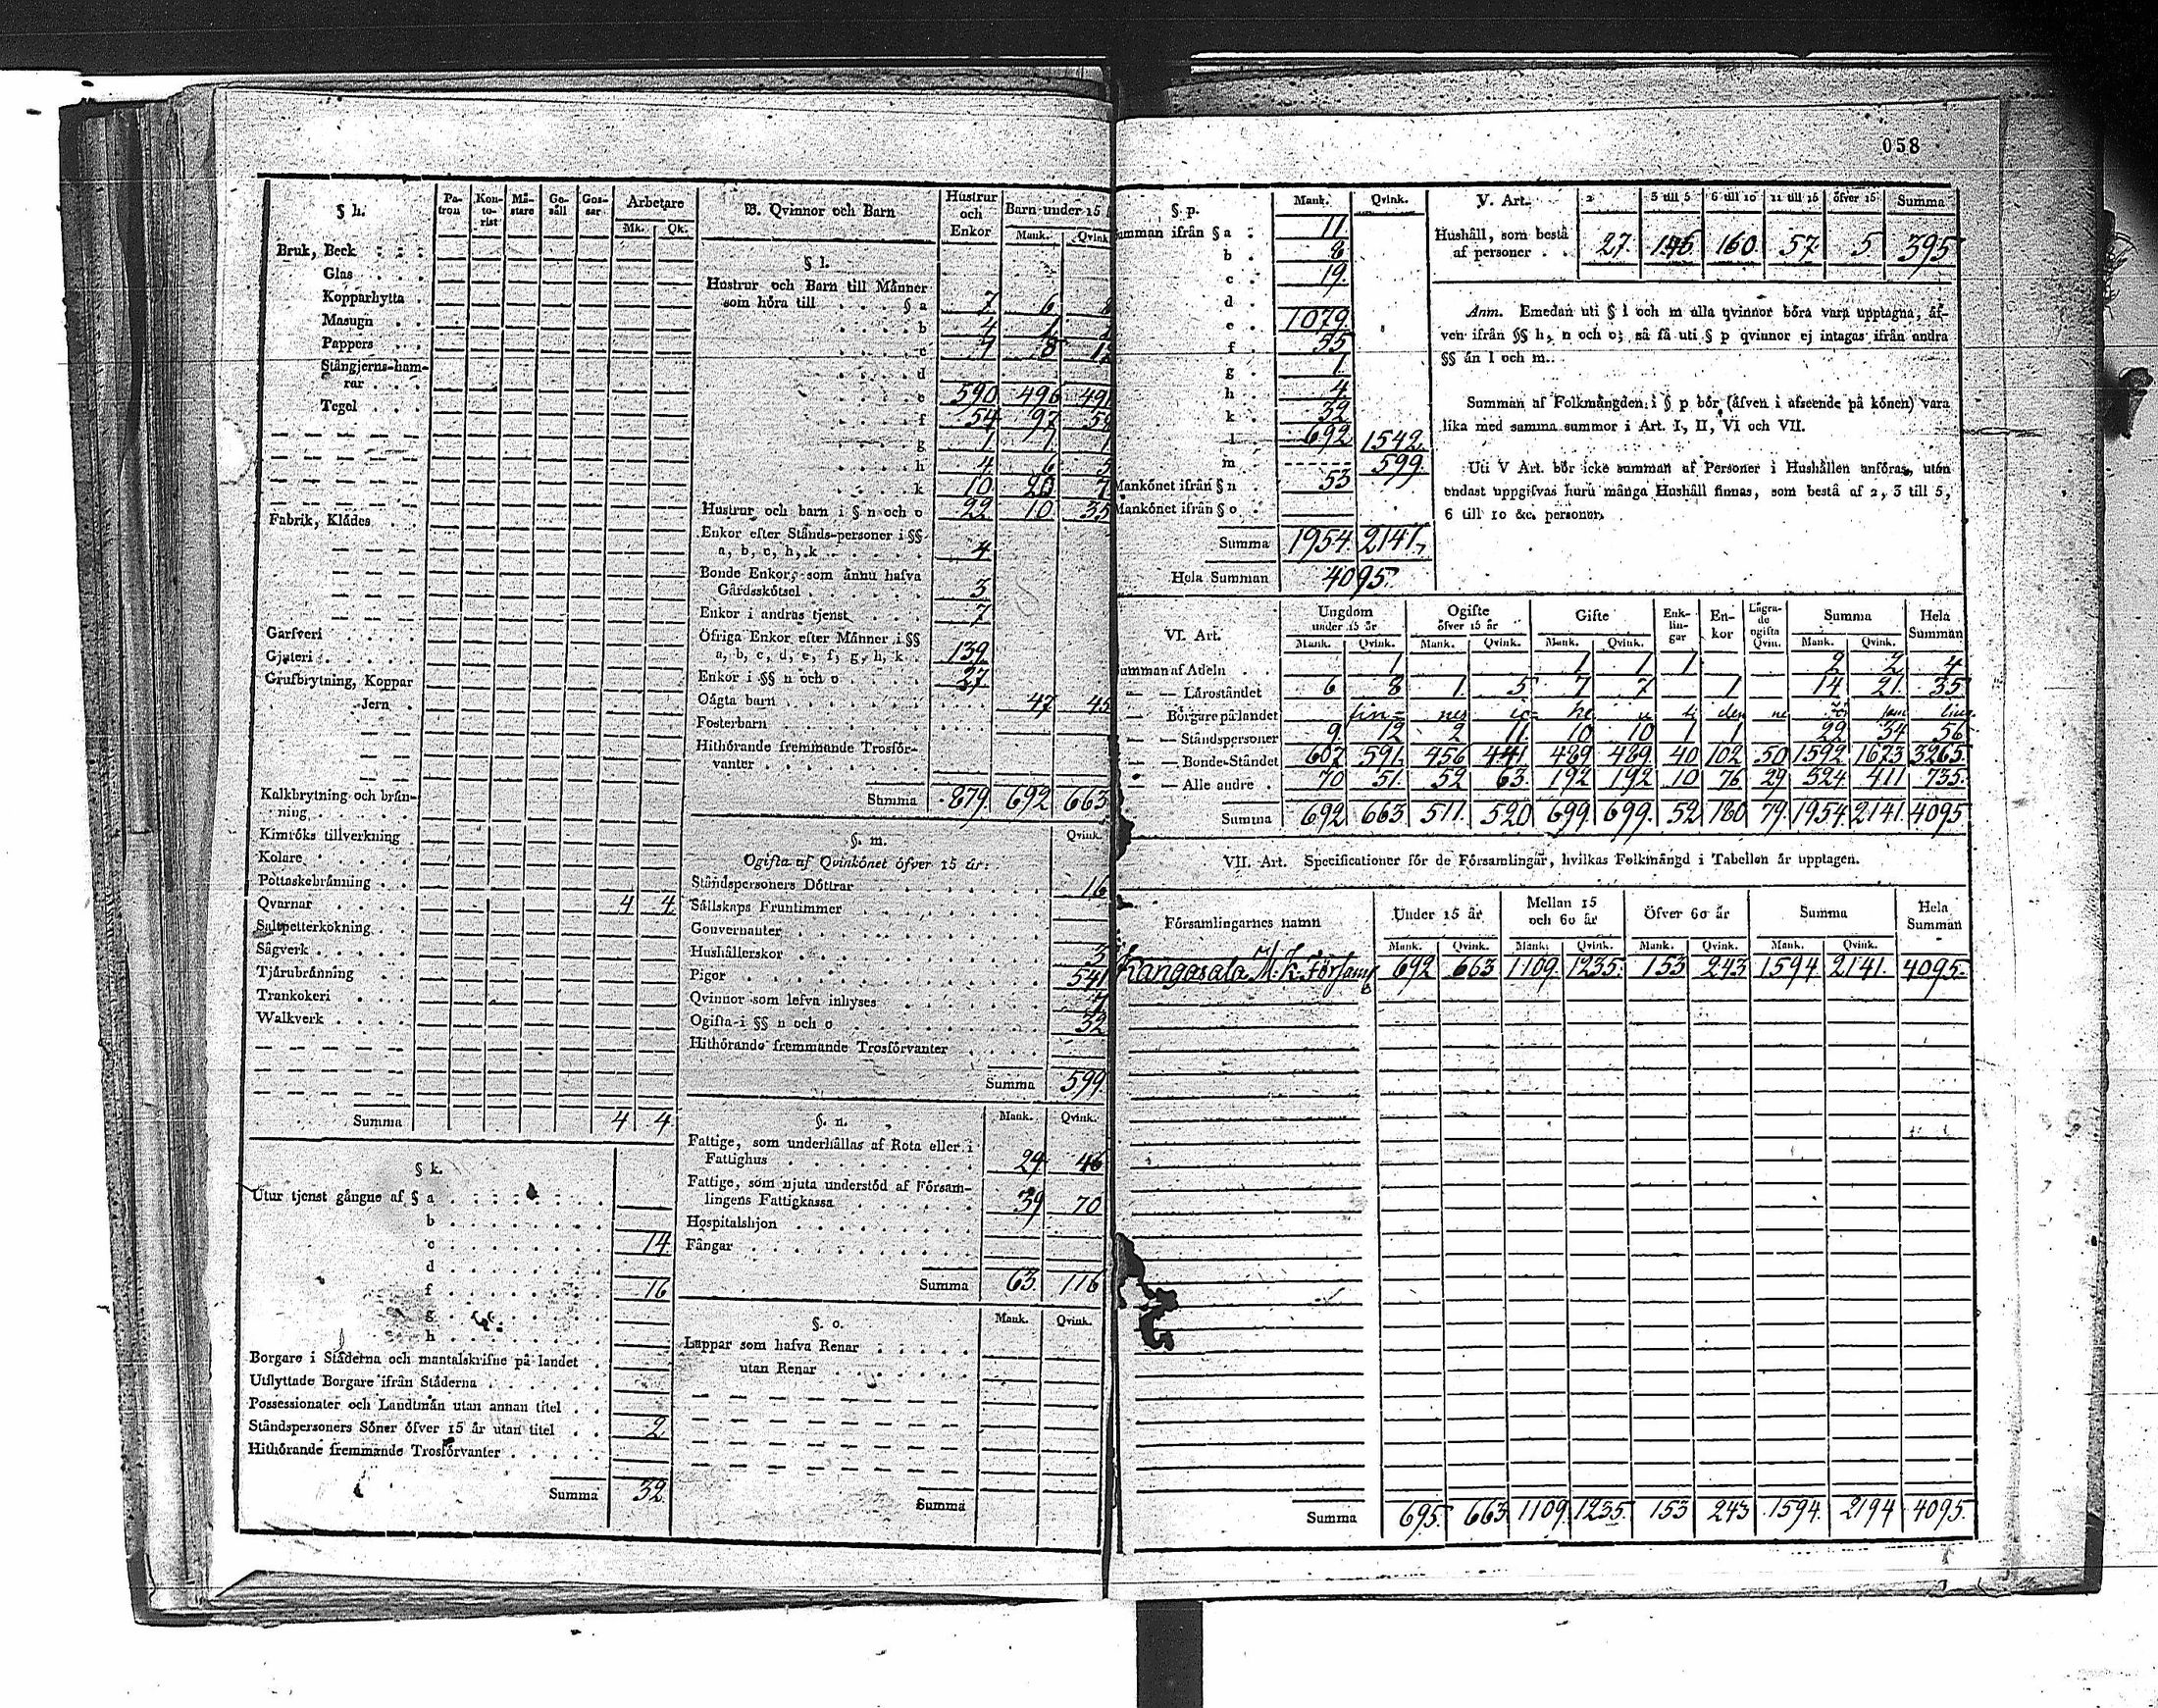 058
§ h.
Pa-tron Kon-to-rist Mä-stare Ge-säll Gos-sar Arbetare
Mk. Qk.
Bruk, Beck
Glas
Kopparhytta
Masugn
Pappers
Stångjerns-ham-
rar
Tegel
Fabrik, Klädes
Garfveri
Gjuteri
Grufbrytning, Koppar
Jern
Kalkbrytning och brän-
ning
Kimröks tillverkning
Kolare
Pottaskebränning
Qvarnar 4 4
Saltpetterkokning
Sågverk
Tjärubränning
Trankokeri
Walkverk
Summa 4 4
§ k.
Utur tjenst gångne af § a
b
c 14
d
f 16
g
h
Borgare i Städerna och mantalskrifne på landet
Utflyttade Borgare ifrån Städerna
Possessionater och Landtmän utan annan titel
Ståndspersoners Söner öfver 15 år utan titel 2
Hithörande fremmande Trosförvanter
Summa 32
B. Qvinnor och Barn Hustrur och Enkor Barn under 15
Mank. Qvink
§ l.
Hustrur och Barn till Männer
som höra till § a 7 6 8
b 4 1
c 7 8 12
d
e 590 496 491
f 54 97 59
g 1 1 1
h 4 6 5
k 10 20 7
Hustrur och barn i § n och o 22 10 35
Enkor efter Stånds-personer i §§
a, b, c, h, k 4
Bonde Enkor, som ännu hafva
Gårdsskötsel 3
Enkor i andras tjenst 7
Öfriga Enkor efter Männer i §§
a, b, c, d, e, f, g, h, k 139
Enkor i §§ n och o 27
Oägta barn 47 45
Fosterbarn
Hithörande fremmande Trosför-
vanter
Summa 879 692 663
§. m. Qvink.
Ogifta af Qvinkönet öfver 15 år:
Ståndspersoners Döttrar 16
Sällskaps Fruntimmer
Gouvernanter
Hushållerskor 3
Pigor 541
Qvinnor som lefva inhyses 7
Ogifta i §§ n och o 32
Hithörande fremmande Trosförvanter
Summa 599
§. n. Mank. Qvink.
Fattige, som underhållas af Rota eller i
Fattighus 24 46
Fattige, som njuta understöd af Församlingens Fattigkassa 39 70
Hospitalshjon
Fångar
Summa 63 116
§. o. Mank. Qvink.
Lappar som hafva Renar
utan Renar
Summa
§ p. Mank. Qvink.
umman ifrån § a 11
b 8
c 19
d
e 1079
f 55
g 1
h 4
k 32
l 692 1542
m 599
Mankönet ifrån § n 53
Mankönet ifrån § o
Summa 1954 2141
Hela Summan 4095
V. Art. 2 3 till 5 6 till 10 11 till 15 öfver 15 Summa
Hushåll, som bestå
af personer 27 146 160 57 5 395
Anm. Emedan uti § l och m alla qvinnor böra vara upptagna, äf-
ven ifrån §§ h, n och o; så få uti § p qvinnor ej intagas ifrån andra
§§ än l och m.
Summan af Folkmängden i § p bör (äfven i afseende på könen) vara
lika med samma summor i Art. I, II, VI och VII.
Uti V Art. bör icke summan af Personer i Hushållen anföras, utan
endast uppgifvas huru många Hushåll finnas, som bestå af 2, 3 till 5,
6 till 10 &c. personer.
VI. Art. Ungdom under 15 år Ogifte öfver 15 år Gifte Enk-lin-gar En-kor Lägra-de ogifta Qvin. Summa Hela Summan
Mank. Qvink. Mank. Qvink. Mank. Qvink. Mank. Qvink.
umman af Adeln 1 1 1 1 2 2 4
— — Läroståndet 6 8 1 5 7 7 1 14 21 35
— Borgare på landet fin- nes ic- ke
— — Ståndspersoner 9 12 2 11 10 10 1 1 22 34 56
— — Bonde-Ståndet 607 591 456 441 489 489 40 102 50 1592 1673 3265
— — Alle andre 70 51 52 63 192 192 10 76 29 324 411 735
Summa 692 663 511 520 699 699 52 180 79 1954 2141 4095
VII. Art. Specificationer för de Församlingar, hvilkas Folkmängd i Tabellen är upptagen.
Församlingarnes namn Under 15 år Mellan 15 och 60 år Öfver 60 år Summa Hela Summan
Mank. Qvink. Mank. Qvink. Mank. Qvink. Mank. Qvink.
Kangasala M. K. Församl 692 663 1109 1235 153 243 1594 2141 4095
Summa 695 663 1109 1235 153 243 1594 2194 4095